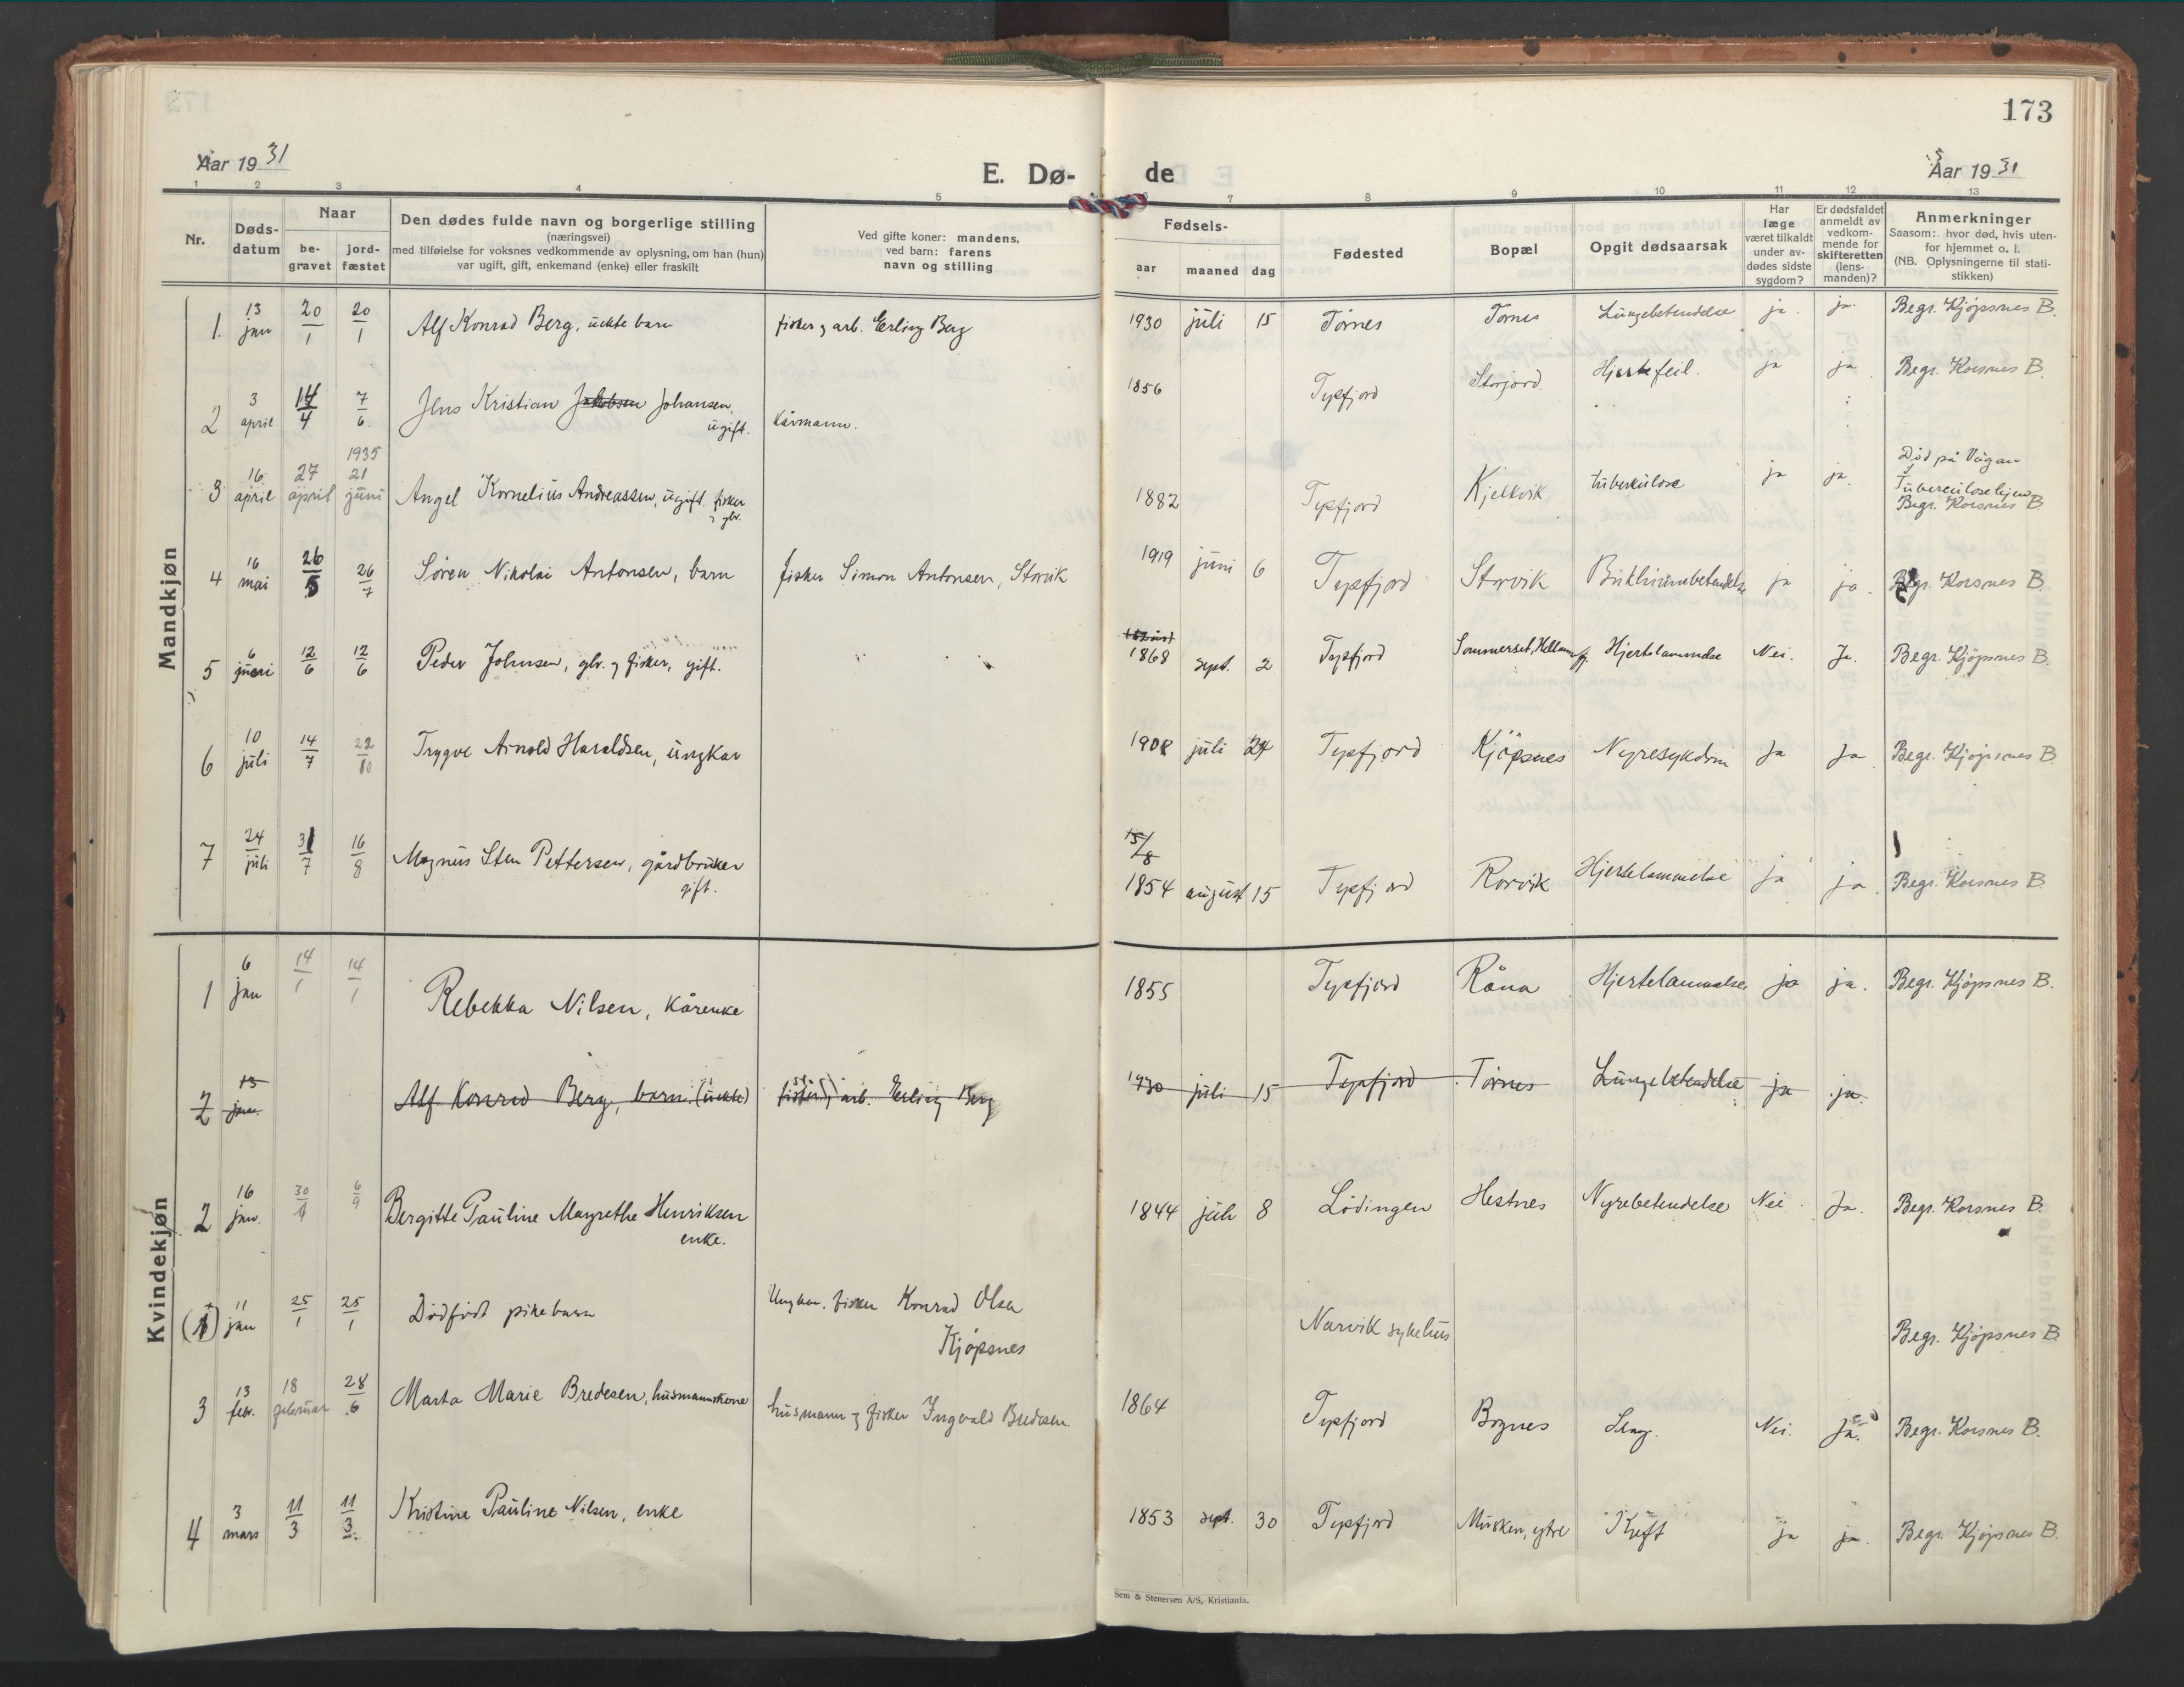 173
Aar 1931
E. Dø-
de
Aar 1931
1 2 3 4 5 6 7 8 9 10 11 12 13
Nr.
Døds-
datum
Naar
be-
gravet
jord-
fæstet
Den dødes fulde navn og borgerlige stilling
(næringsvei)
med tilføielse for voksnes vedkommende av oplysning, om han (hun)
var ugift, gift, enkemand (enke) eller fraskilt
Ved gifte koner: mandens,
ved barn: farens
navn og stilling
Fødsels-
aar maaned dag
Fødested
Bopæl
Opgit dødsaarsak
Har
læge
været tilkaldt
under av-
dødes sidste
sygdom?
Er dødsfaldet
anmeldt av
vedkom-
mende for
skifteretten
(lens-
manden)?
Anmerkninger
Saasom: hvor død, hvis uten-
for hjemmet o. l.
(NB. Oplysningerne til stati-
stikken)
Mandkjøn
1. 13 jan 20/1 20/1 Alf Konrad Berg, uekte barn fisker og arb. Erling Berg 1930 juli 15 Tørnes Tørnes Lungebetendelse ja. ja. Begr. Kjöpsnes B.
2 3 april 14/4 7/6 Jens Kristian Jakobsen Johansen, ugift. kårmann. 1856 Tysfjord Storjord. Hjertefeil. ja ja Begr. Korsnes B.
3 16 april 27 april 1935 21 juni Angel Kornelius Andreassen, ugift fisker og gbr. 1882 Tysfjord Kjelkvik tuberkulose ja ja. Död på Vågan Tuberculosehjem Begr. Korsnes B.
4 16 mai 26/5 26/7 Søren Nikolai Antonsen, barn fisker Simon Antonsen, Storvik 1919 juni 6 Tysfjord Storvik Bukhinnebetendelse ja ja. Begr. Korsnes B.
5 6 juni 12/6 12/6 Peder Johnsen, gbr. og fisker, gift. 1868 sept. 2 Tysfjord Sommerset, Hellemofj. Hjertelammelse Nei. Ja. Begr. Kjöpsnes B.
6 10 juli 14/7 22/10 Trygve Arnold Haraldsen, ungkar 1908 juli 24 Tysfjord Kjöpsnes Nyresykdom Ja Ja Begr. Kjöpsnes B.
7 24 juli 31/7 16/8 Magnus Sten Pettersen, gårdbruker gift. 15/8 1854 august 15 Tysfjord Rorvik Hjertelammelse ja ja. Begr. Korsnes B.
Kvindekjøn
1 6 jan 14/1 14/1 Rebekka Nilsen, kårenke 1855 Tysfjord Råna Hjertelammelse ja ja. Begr. Kjöpsnes B.
2 13 jan. Alf Konrad Berg, barn (uekte) fisker og arb. Erling Berg 1930 juli 15 Tysfjord Tørnes Lungebetendelse ja ja.
2 16 jan. 30/1 6/9 Bergitte Pauline Margrethe Henriksen enke. 1844 juli 8 Lödingen Hestnes Nyrebetendelse Nei Ja. Begr. Korsnes B.
(1) 11 jan 25/1 25/1 Dødfødt pikebarn Ungkar. fisker Konrad Olsen Kjöpsnes Narvik sykehus Begr. Kjöpsnes B.
3 13 febr. 18 februar 28/6 Marta Marie Bredesen, husmannskone husmann og fisker Ingvald Bredesen. 1864 Tysfjord Bognes Slag. Nei. Ja. Begr. Korsnes B.
4 3 mars 11/3 11/3. Kristine Pauline Nilsen, enke 1853 sept. 30 Tysfjord Musken, ytre Kreft ja ja. Begr. Kjöpsnes B.
Sem & Stenersen A/S, Kristiania.